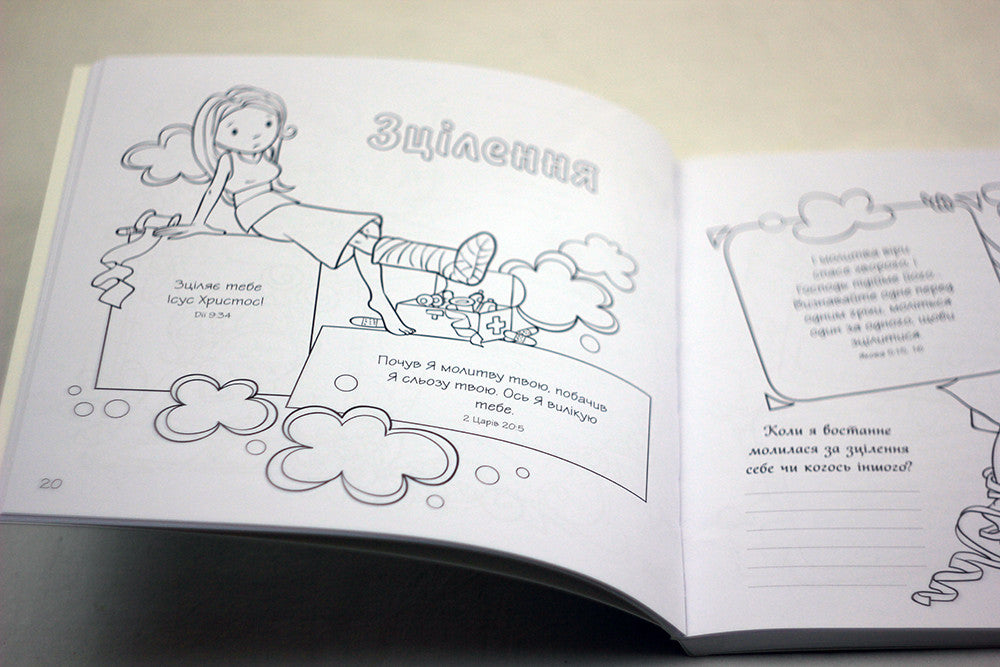 Зцілення
Зціляє тебе
Ісус Христос!
Дії 9:34
Почув Я молитву твою, побачив
Я сльозу твою. Ось Я вилікую
тебе.
2 Царів 20:5
20
І молитва віри
спасе хворого, і
Господь підійме його.
Визнавайте один перед
одним гріхи, моліться
один за одного, щоби
зцілитися.
Якова 5:15, 16
Коли я востаннє
молилася за зцілення
себе чи когось іншого?